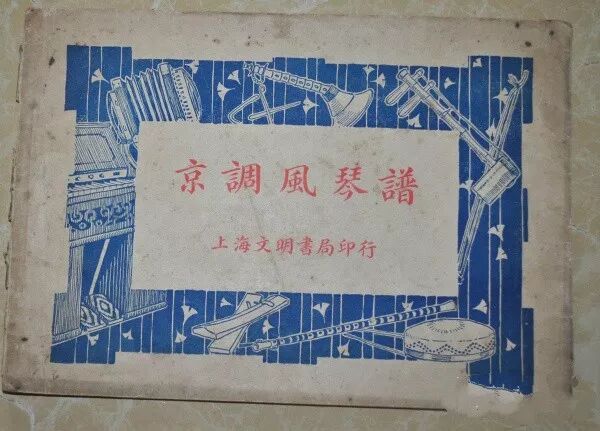 京調風琴譜
上海文明書局印行